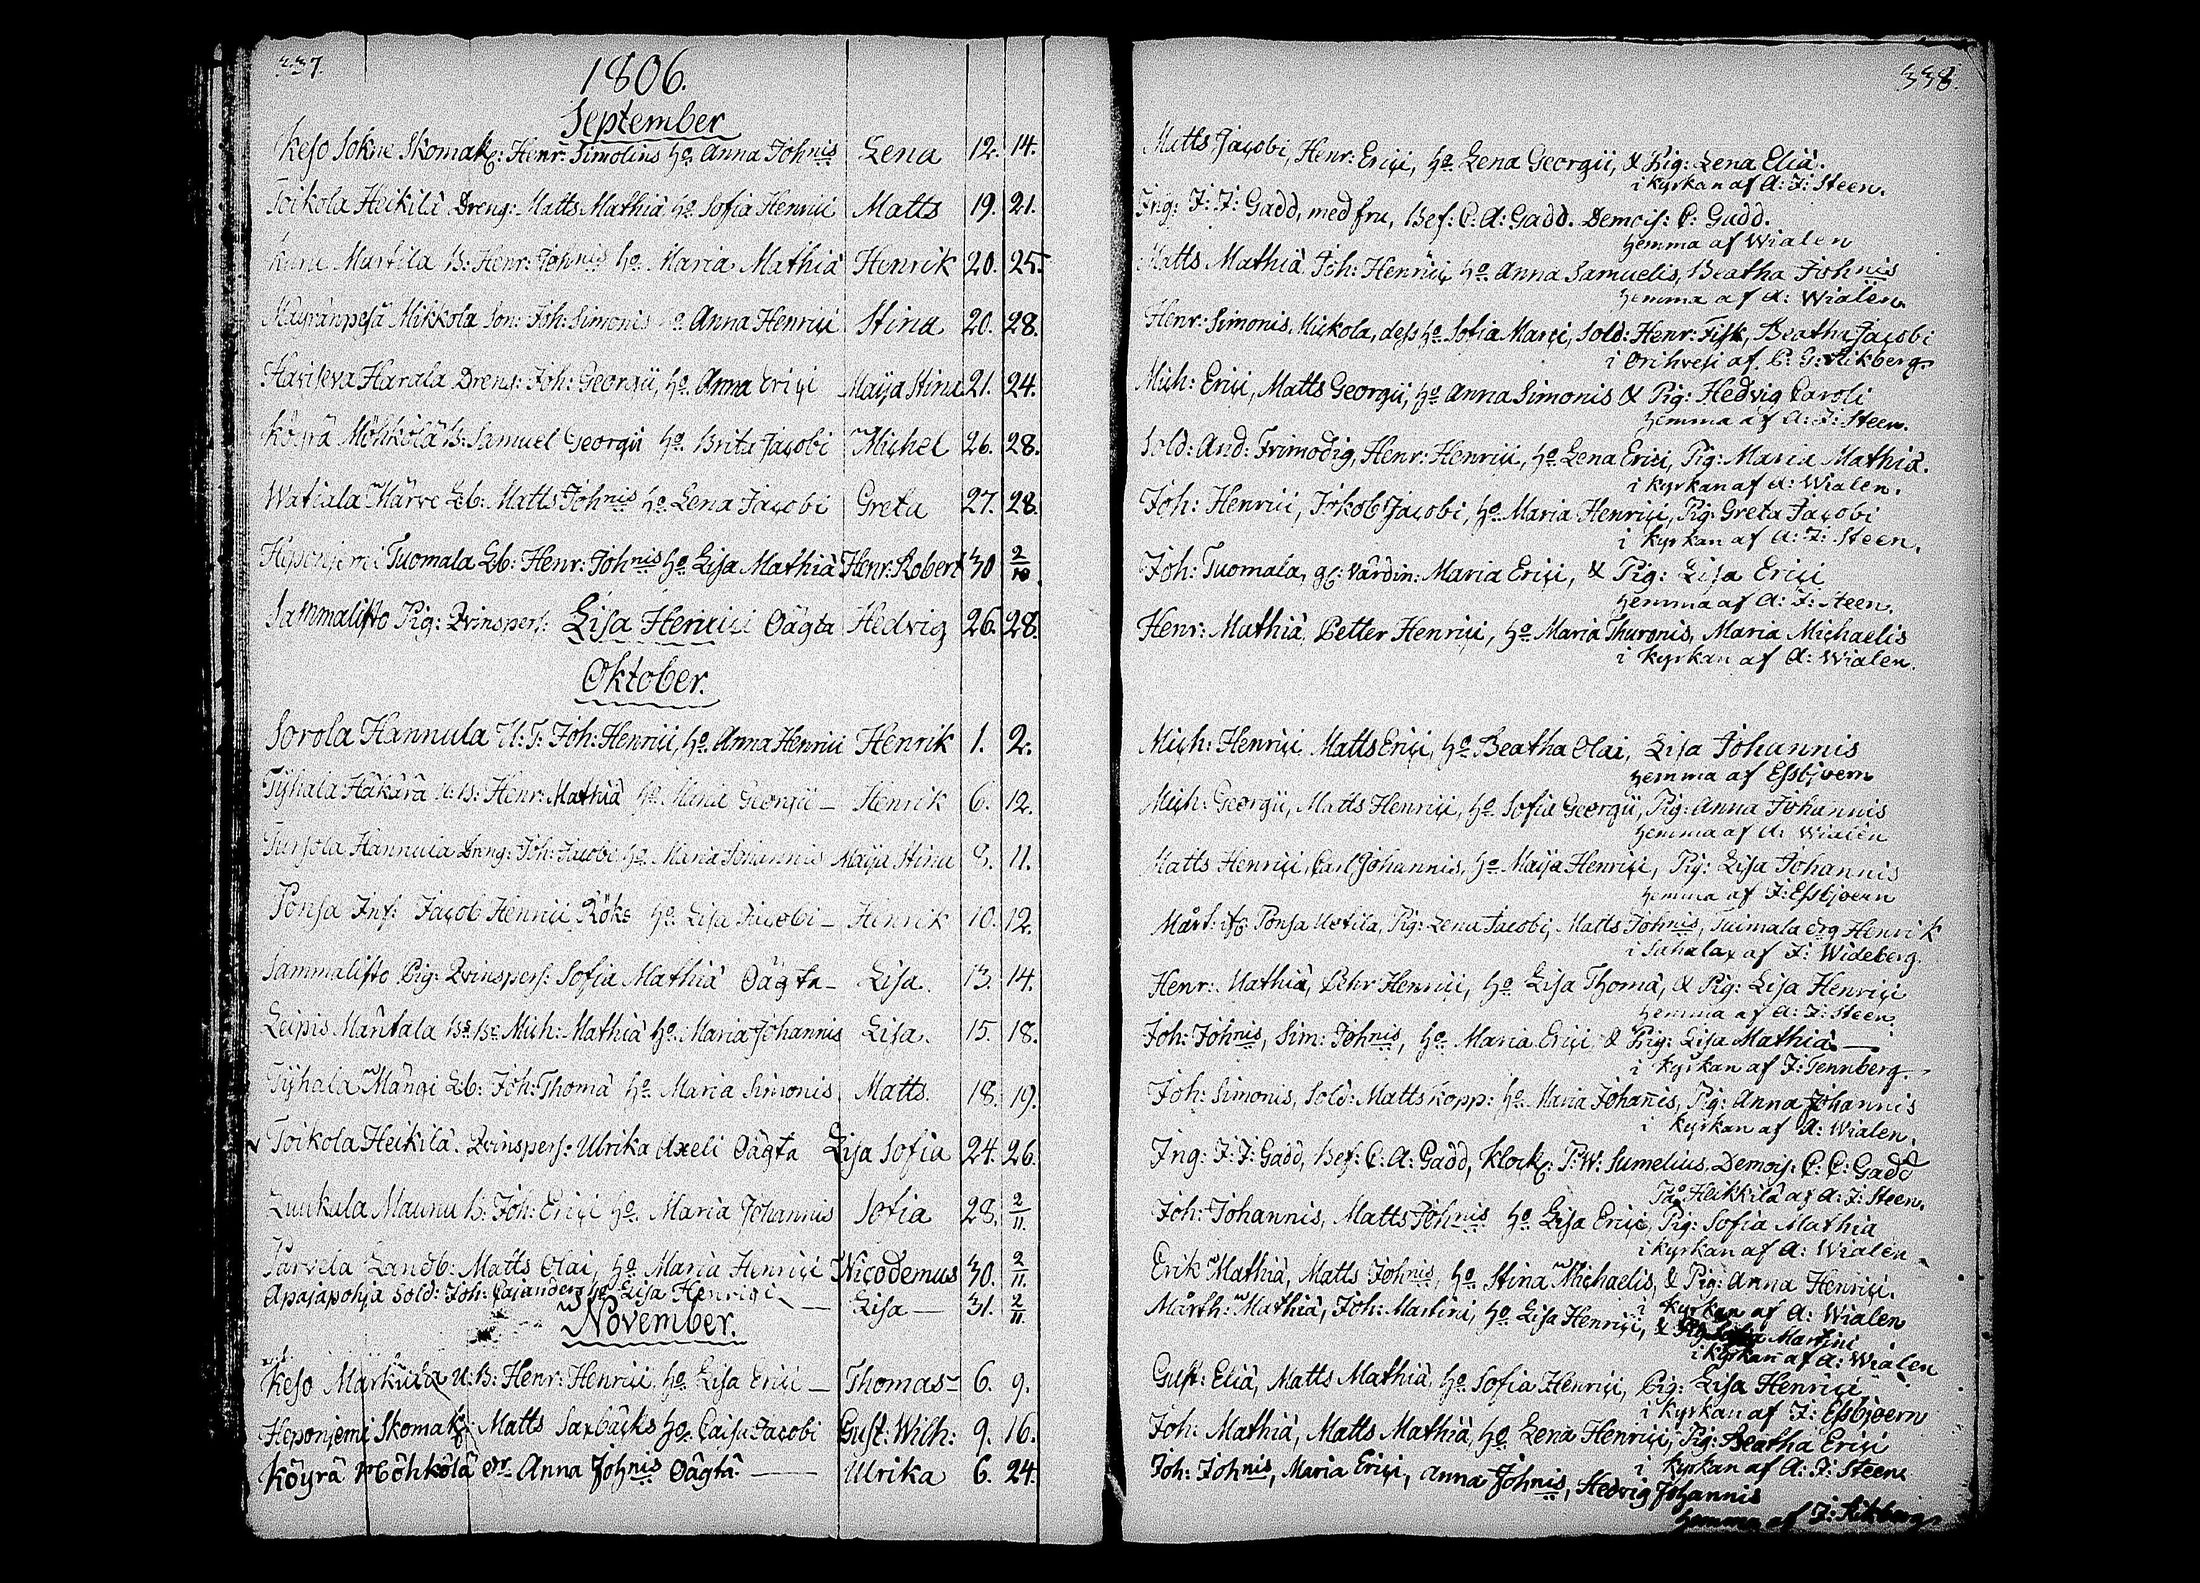 337.
1806.
September
Keso Sokne Skomak: Henr: Simolins ho. Anna Johnis Lena 12. 14.
Toikola Heikilä Dreng: Matts Mathiä ho. Sofia Henrici Matts 19. 21.
Kuru Martila B: Henr: Johnis ho. Maria Mathiä Henrik 20. 25.
Mäyränpesä Mikkola Son: Joh: Simonis ho. Anna Henrici Stina 20. 28.
Haviseva Harala Dreng: Joh: Georgii, ho. Anna Erici Maija Stina 21. 24.
Köyrä Möhkölä B: Samuel Georgii ho. Brita Jacobi Michel 26. 28.
Watiala Märve Lb: Matts Johnis ho. Lena Jacobi Greta 27. 28.
Tuomala Lb: Henr: Johnis ho. Lisa Mathiä Henr: Robert 30 2/10
Sammalisto Pig: Qvinspers: Lisa Henrici Oägta Hedvig 26. 28.
Oktober.
Sorola Hannula U: T: Joh: Henrici, ho. Anna Henrici Henrik 1. 2.
Tÿhala Häkärä U: B: Henr: Mathiä ho. Maria Georgii – Henrik 6. 12.
Tursola Hannula Dreng: Joh: Jacobi ho. Maria Johannis Maija Stina 8. 11.
Ponsa Inh: Jacob Henrici Röks ho. Lisa Jacobi – Henrik 10. 12.
Sammalisto Pig: Qvinspers: Sofia Mathiä Oägta – Lisa. 13. 14.
Leipis Mantala Bs: Be Mich: Mathiä ho. Maria Johannis Lisa. 15. 18.
Tÿhala Mängi Lb: Joh: Thomä ho. Maria Simonis Matts. 18. 19.
Toikola Heikilä. Qvinspers: Ulrika Axeli Oägta Lisa Sofia 24. 26.
Luukala Maunu B: Joh: Erici ho. Maria Johannis Sofia 28. 2/11.
Parvela Landb: Matts Olai, ho. Maria Henrici Nicodemus 30. 2/11.
Apajapohja Sold: Joh: Cajander ho. Lisa Henrici – Lisa – 31. 2/11.
November.
Keso Markula U: B: Henr: Henrici ho. Lisa Erici – Thomas – 6. 9.
Heponjemi Skomak: Matts Saxbäcks ho. Caisa Jacobi Gust: Wilh: 9. 16.
Köyrä Möhkölä Dr. Anna Johnis Oägta. – Ulrika 6. 24.
338.
Matts Jacobi, Henr: Erici, ho. Lena Georgii, & Pig: Lena Eliä.
i kyrkan af A: J: Steen.
Ing: J: J: Gadd, med fru, Bef: C: A: Gadd. Demois: C: Gadd.
hemma af Wialen
Matts Mathiä Joh: Henrici ho. Anna Samuelis, Beatha Johnis
hemma af A: Wialen.
Henr: Simonis, Mickola, dess ho. Sofia Marci, Sold: Henr: Fisk, Beatha Jacobi
i Orihvesi af C: G: Aikberg.
Mich: Erici, Matts Georgii, ho. Anna Simonis & Pig: Hedvig Caroli
hemma af A: J: Steen.
Sold: And: Frimodig, Henr: Henrici, ho. Lena Erici, Pig: Maria Mathiä.
i kyrkan af A: Wialen.
Joh: Henrici, Jakob Jacobi, ho. Maria Henrici, Pig: Greta Jacobi
i kyrkan af A: J: Steen.
Joh: Tuomala, gl: Värdin: Maria Erici, & Pig: Lisa Erici
hemma af A: J: Steen.
Henr: Mathiä, Petter Henrici, ho. Maria Thuronis, Maria Michaelis
i kyrkan af A: Wialen.
Mich: Henrici Matts Erici, ho. Beatha Olai, Lisa Johannis
hemma af Essbjoern
Mich: Georgii, Matts Henrici, ho. Sofia Georgii, Pig: Anna Johannis
hemma af A: Wialen
Matts Henrici, Carl Johannis, ho. Maija Henrici, Pig: Lisa Johannis
hemma af J: Essbjoern
Mårt: Ponsa Uotila, Pig: Lena Jacobi, Matts Johnis, Tuimala drg Henrik
i Sahalax af J: Wideberg.
Henr: Mathiä, Pehr Henrici, ho. Lisa Thomä, & Pig: Lisa Henrici
hemma af A: J: Steen.
Joh: Johnis, Sim: Johnis, ho. Maria Erici & Pig: Lisa Mathiä. –
i kyrkan af J: Tennberg.
Joh: Simonis, Sold: Matts Kopp: ho. Maria Johanis, Pig: Anna Johannis
i kyrkan af A: Wialen.
Ing: J: J: Gadd, Bef: C: A: Gadd, Klock: P: W: Sumelius, Demois: C: C: Gadd
På Heikkilä af A: J: Steen.
Joh: Johannis, Matts Johnis ho. Lisa Erici, Pig: Sofia Mathiä
i kyrkan af A: Wialen
Erik Mathiä, Matts Johnis, ho. Stina Michaelis, & Pig: Anna Henrici.
i kyrkan af A: Wialen
Mårth: Mathiä, Joh: Martini, ho. Lisa Henrici, & Pig: Martini
i kyrkan af A: Wialen
Gust: Eliä, Matts Mathiä, ho. Sofia Henrici, Pig: Lisa Henrici
i kyrkan af J: Essbjoern
Joh: Mathiä, Matts Mathiä, ho. Lena Henrici, Pig: Beatha Erici
i kyrkan af A: J: Steen.
Joh: Johnis, Maria Erici, Anna Johnis, Hedvig Johannis
hemma af J: Aikberg.